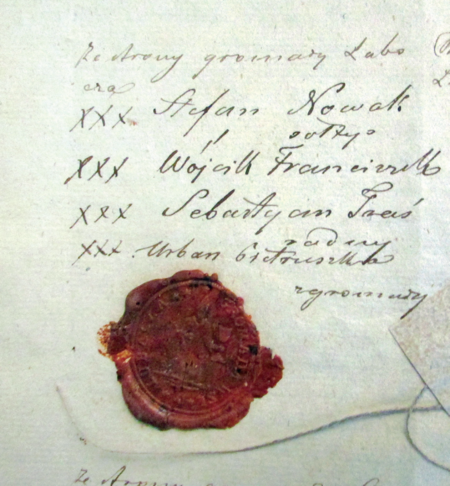 Ze strony gromady Łabo
XXX Stefan Nowak
sołtys
XXX Wójcik Franciszek
XXX Sebastyan Traś
radny
XXX Urban Pietruszka
z gromady